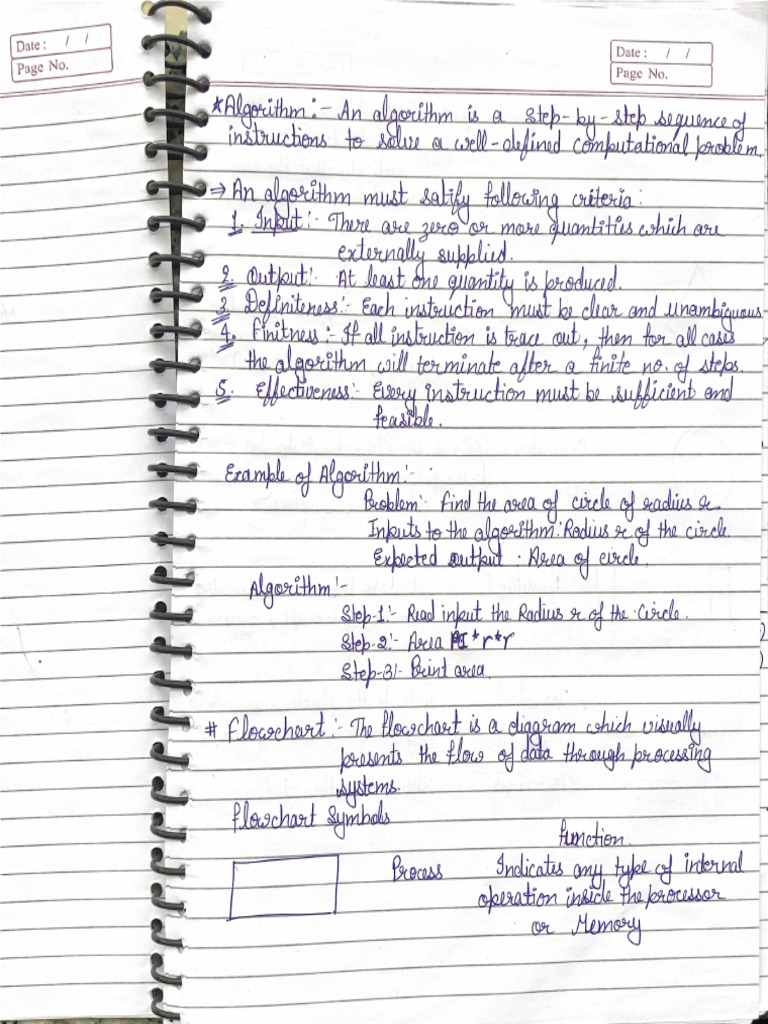 Date : / /
Page No.
Date : / /
Page No.
*Algorithm:- An algorithm is a step-by-step sequence of
instructions to solve a well-defined computational problem.
⇒ An algorithm must satify following criteria:
1. Input:- There are zero or more quantities which are
externally supplied.
2. Output:- At least one quantity is produced.
3. Definiteness:- Each instruction must be clear and unambiguous
4. Finitness:- If all instruction is trace out, then for all cases
the algorithm will terminate after a finite no. of steps.
5. Effectiveness:- Every instruction must be sufficient and
feasible.
Example of Algorithm:-
Problem:- Find the area of circle of radius r.
Inputs to the algorithm: Radius r of the circle.
Expected output : Area of circle.
Algorithm:-
Step-1:- Read input the Radius r of the Circle.
Step-2:- Area PI*r*r
Step-3:- Print area.
# Flowchart:- The flowchart is a diagram which visually
presents the flow of data through processing
systems.
Flowchart Symbols
Function.
Process Indicates any type of internal
operation inside the processor
or Memory